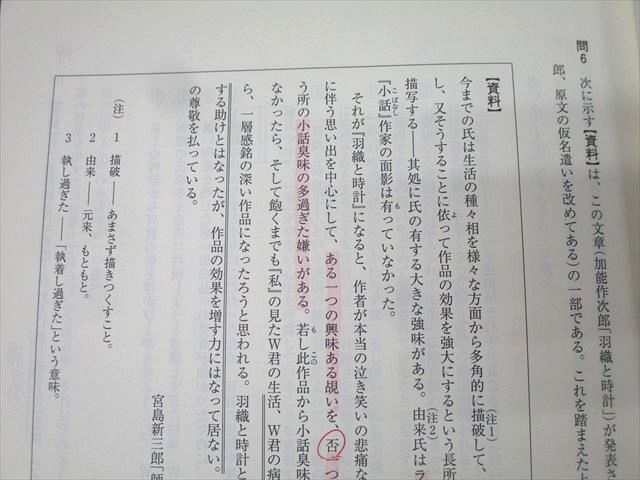 問6 次に示す【資料】は、この文章(加能作次郎「羽織と時計」)が発表さ
郎、原文の仮名遣いを改めてある)の一部である。これを踏まえた上
【資料】
今までの氏は生活の種々相を様々な方面から多角的に描破して、
(注1)
し、又そうすることに依って作品の効果を強大にするという長所
よ
描写する――其処に氏の有する大きな強味がある。由来氏はラ
(注2)
『小話』作家の面影は有っていなかった。
こばなし
も
それが『羽織と時計』になると、作者が本当の泣き笑いの悲痛な
に伴う思い出を中心にして、ある一つの興味ある覘いを、否一つ
う所の小話臭味の多過ぎた嫌いがある。若し此作品から小話臭味
も
この
なかったら、そして飽くまでも『私』の見たW君の生活、W君の病
ら、一層感銘の深い作品になったろうと思われる。羽織と時計と
する助けとはなったが、作品の効果を増す力にはなって居ない。
の尊敬を払っている。
宮島新三郎「師
(注) 1 描破――あまさず描きつくすこと。
2 由来――元来、もともと。
3 執し過ぎた――「執着し過ぎた」という意味。